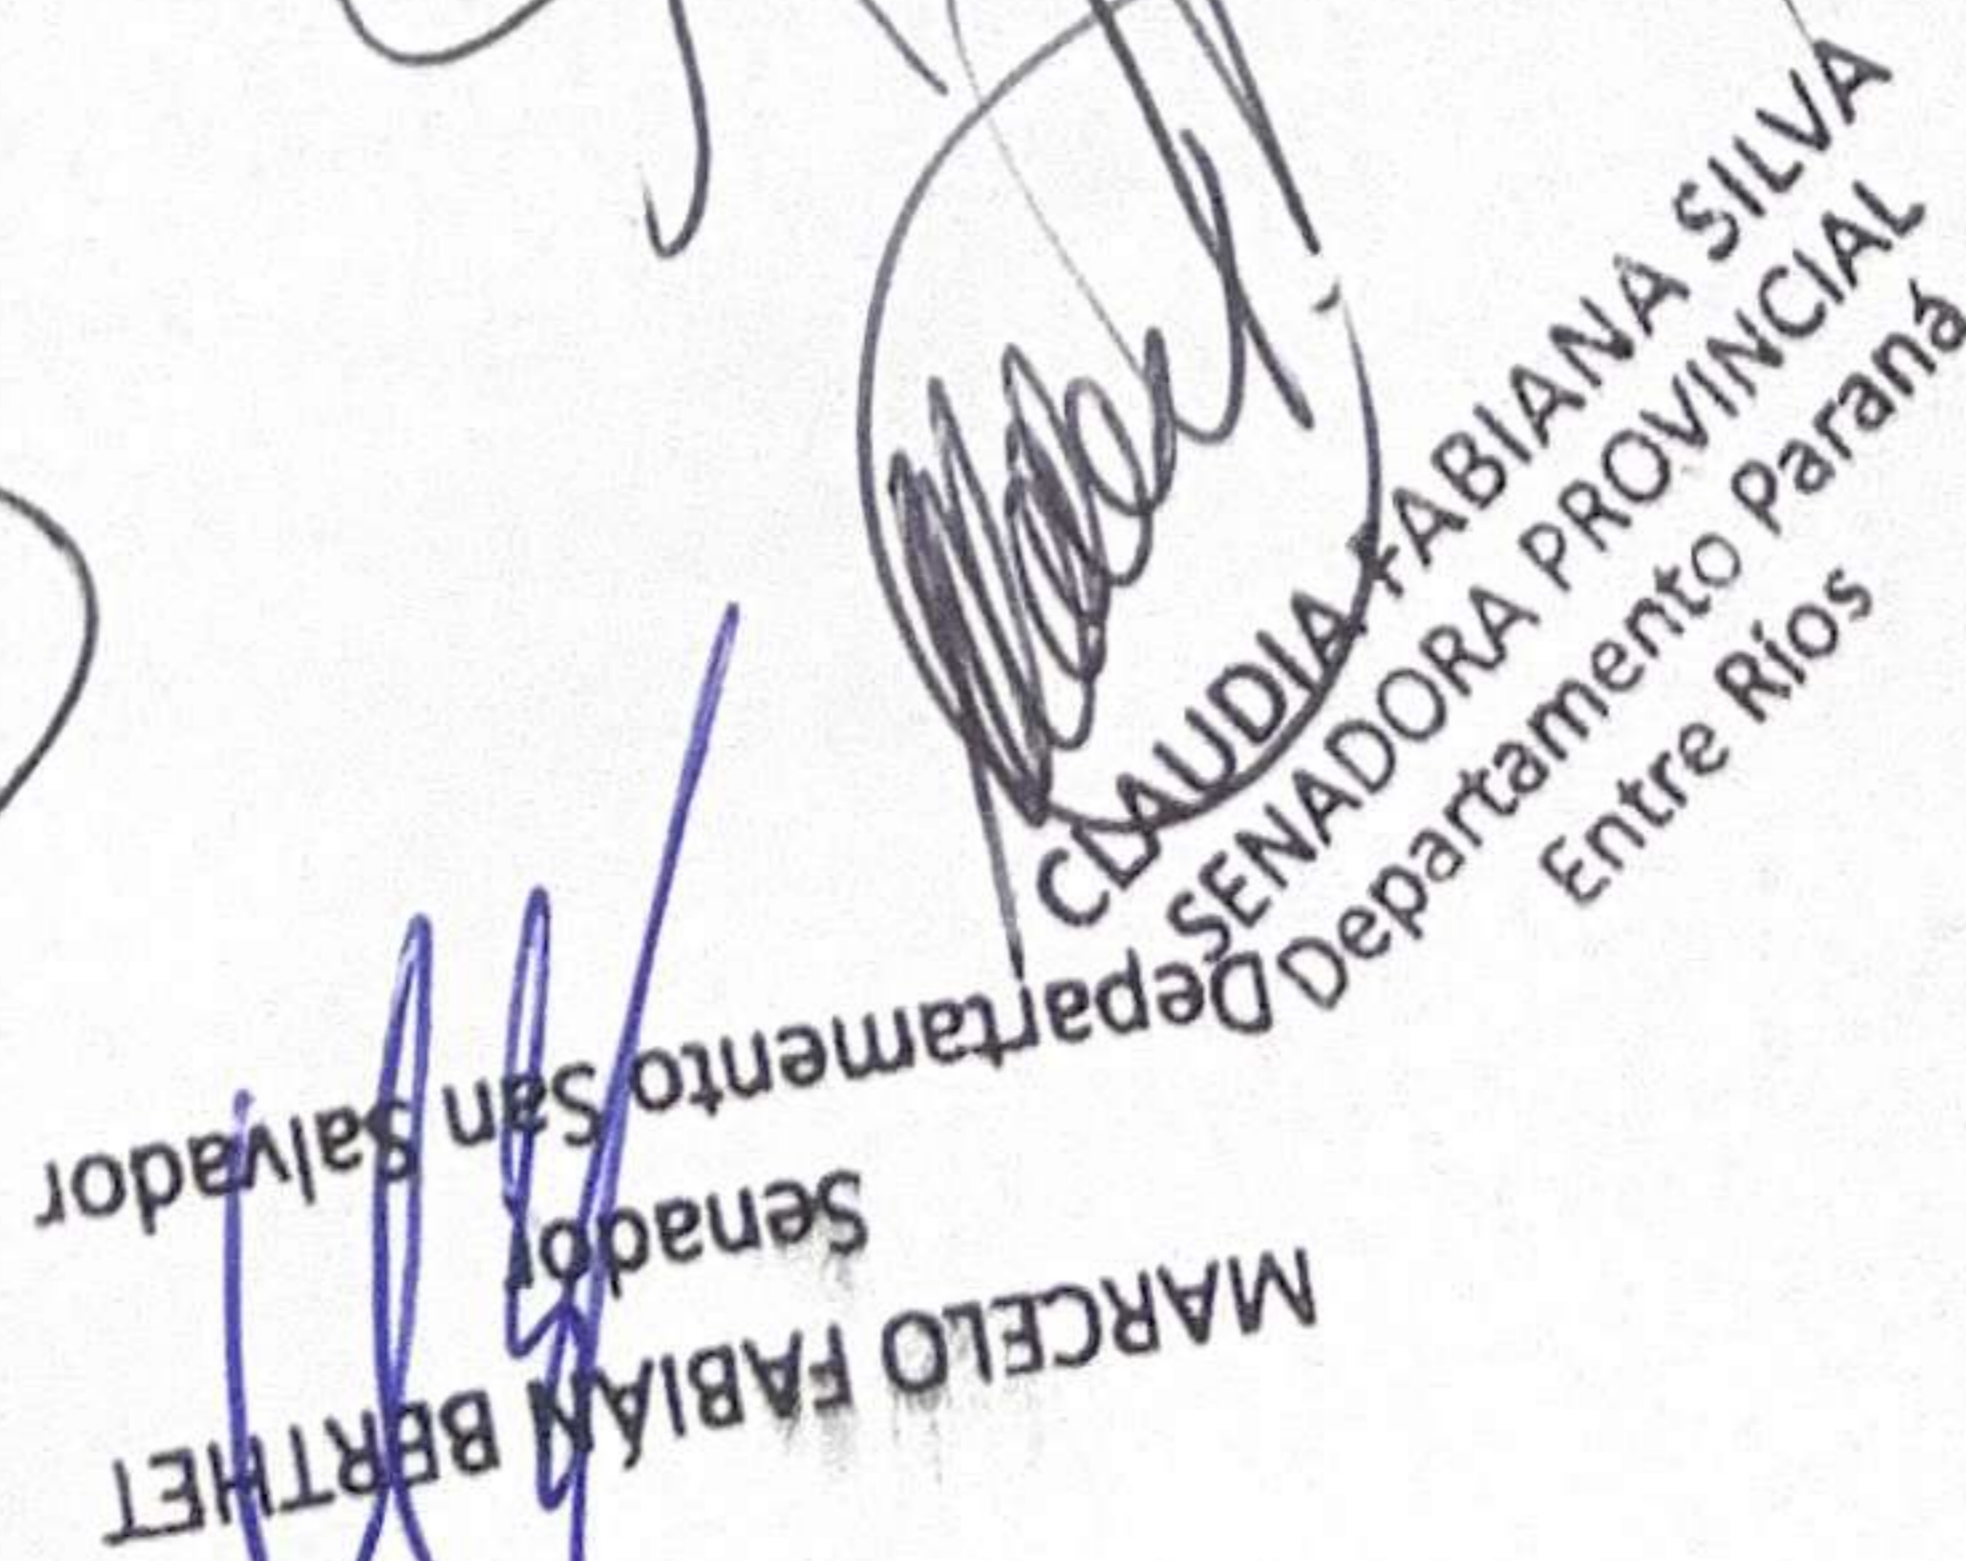 CLAUDIA FABIANA SILVA
SENADORA PROVINCIAL
Departamento Paraná
Entre Ríos
MARCELO FABIÁN BERTHET
Senador
Departamento San Salvador